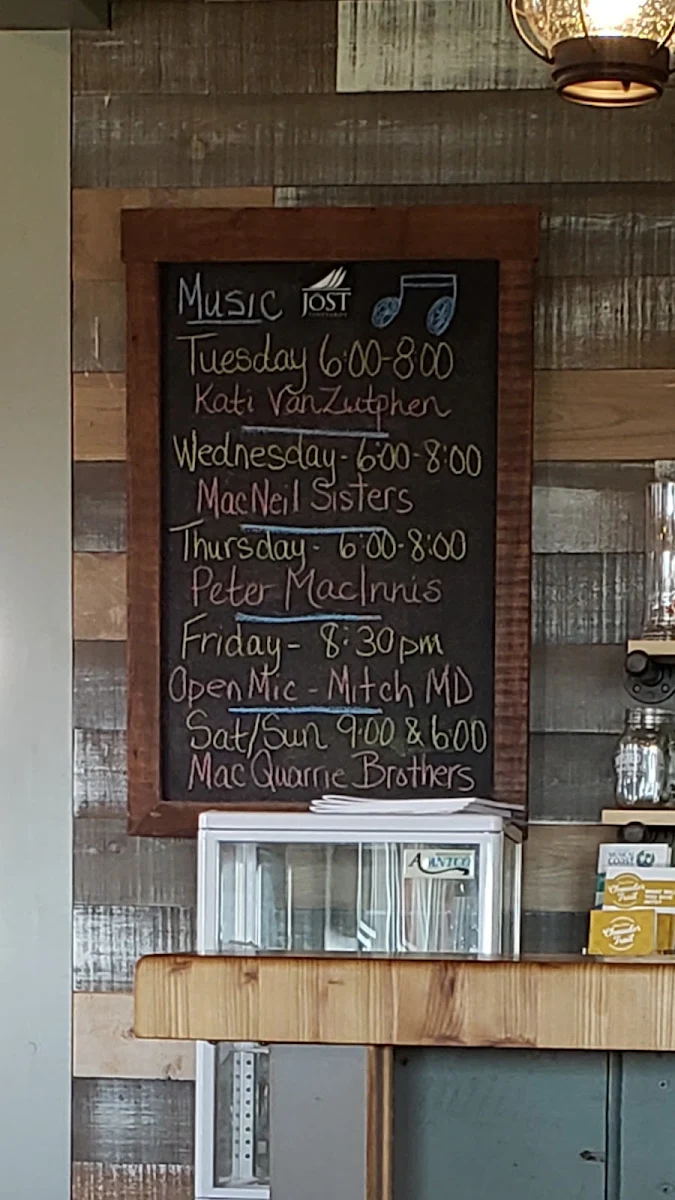 Music JOST
VINEYARDS
Tuesday 6:00-8:00
Kati VanZutphen
Wednesday - 6:00-8:00
MacNeil Sisters
Thursday - 6:00-8:00
Peter MacInnis
Friday - 8:30pm
Open Mic - Mitch MD
Sat/Sun 9:00 & 6:00
MacQuarrie Brothers
AVANTCO
Chowder
Trail
Chowder
Trail